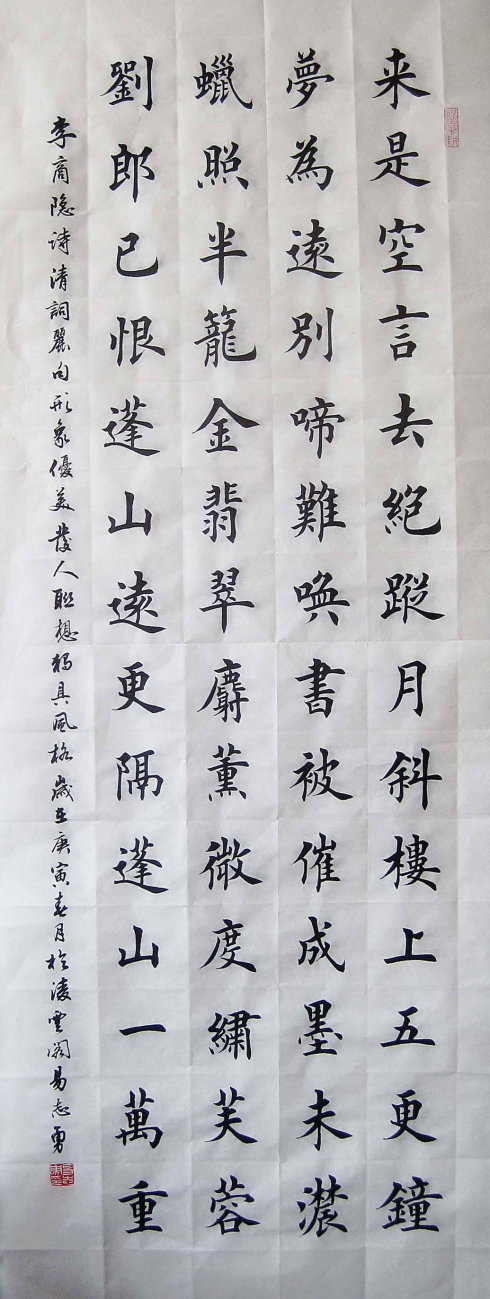 来是空言去絕蹤月斜樓上五更鐘
夢為遠別啼難喚書被催成墨未濃
蠟照半籠金翡翠麝薰微度繡芙蓉
劉郎已恨蓬山遠更隔蓬山一萬重
李商隐诗清詞麗句形象優美發人联想獨具風格歲在庚寅春月於淩雲阁易志勇